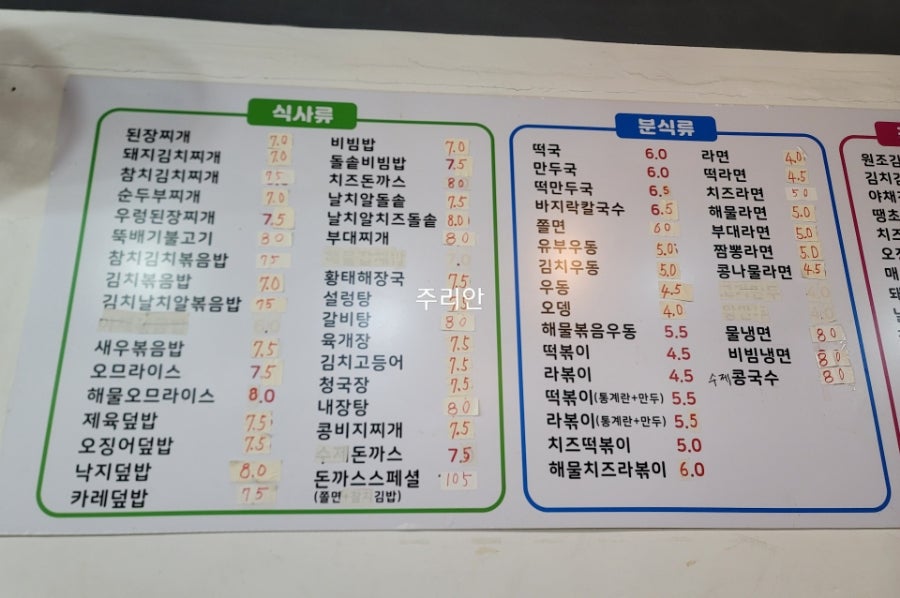 식사류
된장찌개 7.0
돼지김치찌개 7.0
참치김치찌개 7.5
순두부찌개
우렁된장찌개 7.5
뚝배기불고기 8.0
참치김치볶음밥 7.5
김치볶음밥 7.0
김치날치알볶음밥 7.5
6.0
새우볶음밥 7.5
오므라이스 7.5
해물오므라이스 8.0
제육덮밥 7.5
오징어덮밥 7.5
낙지덮밥 8.0
카레덮밥 7.5
비빔밥 7.0
돌솥비빔밥 7.5
치즈돈까스 8.0
날치알돌솥 7.5
날치알치즈돌솥 8.0
부대찌개 8.0
7.0
황태해장국 7.5
설렁탕
갈비탕 8.0
육개장 7.5
김치고등어 7.5
청국장 7.5
내장탕 8.0
콩비지찌개 7.5
수제돈까스 7.5
돈까스스페셜 10.5
(쫄면+참치김밥)
주리안
분식류
떡국 6.0
만두국 6.0
떡만두국 6.5
바지락칼국수 6.5
쫄면 6.0
유부우동 5.0
김치우동 5.0
우동 4.5
오뎅 4.0
해물볶음우동 5.5
떡볶이 4.5
라볶이 4.5
떡볶이(통계란+만두) 5.5
라볶이(통계란+만두) 5.5
치즈떡볶이 5.0
해물치즈라볶이 6.0
라면 4.0
떡라면 4.5
치즈라면 5.0
해물라면 5.0
부대라면 5.0
짬뽕라면 5.0
콩나물라면 4.5
4.0
4.0
물냉면 8.0
비빔냉면 8.0
수제콩국수 8.0
원조김
김치김
야채
땡초
치즈
오징
매
돼
날